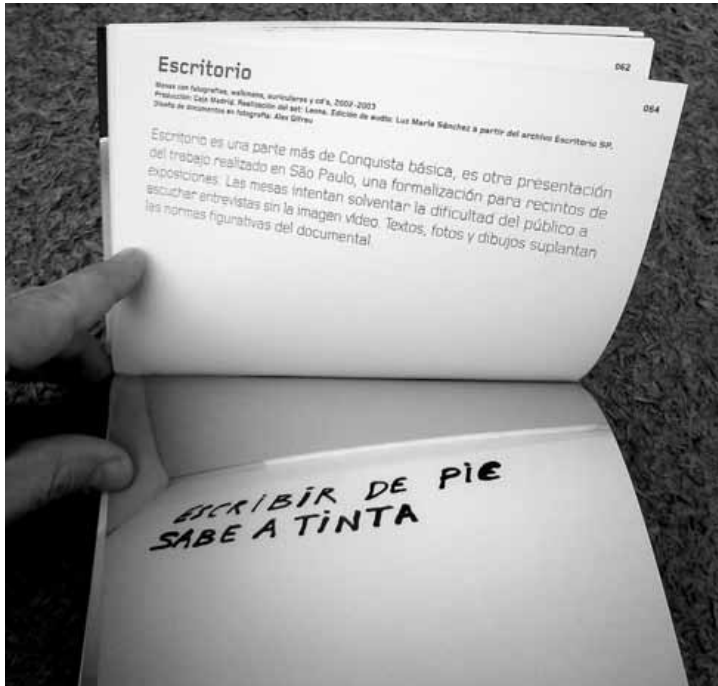 062
064
Escritorio
Mesas con fotografías, walkmans, auriculares y cd's, 2002-2003
Producción: Caja Madrid. Realización del set: Leona. Edición de audio: Luz María Sánchez a partir del archivo Escritorio SP.
Diseño de documentos en fotografía: Alex Gifreu
Escritorio es una parte más de Conquista básica, es otra presentación
del trabajo realizado en São Paulo, una formalización para recintos de
exposiciones. Las mesas intentan solventar la dificultad del público a
escuchar entrevistas sin la imagen vídeo. Textos, fotos y dibujos suplantan
las normas figurativas del documental.
ESCRIBIR DE PIE
SABE A TINTA